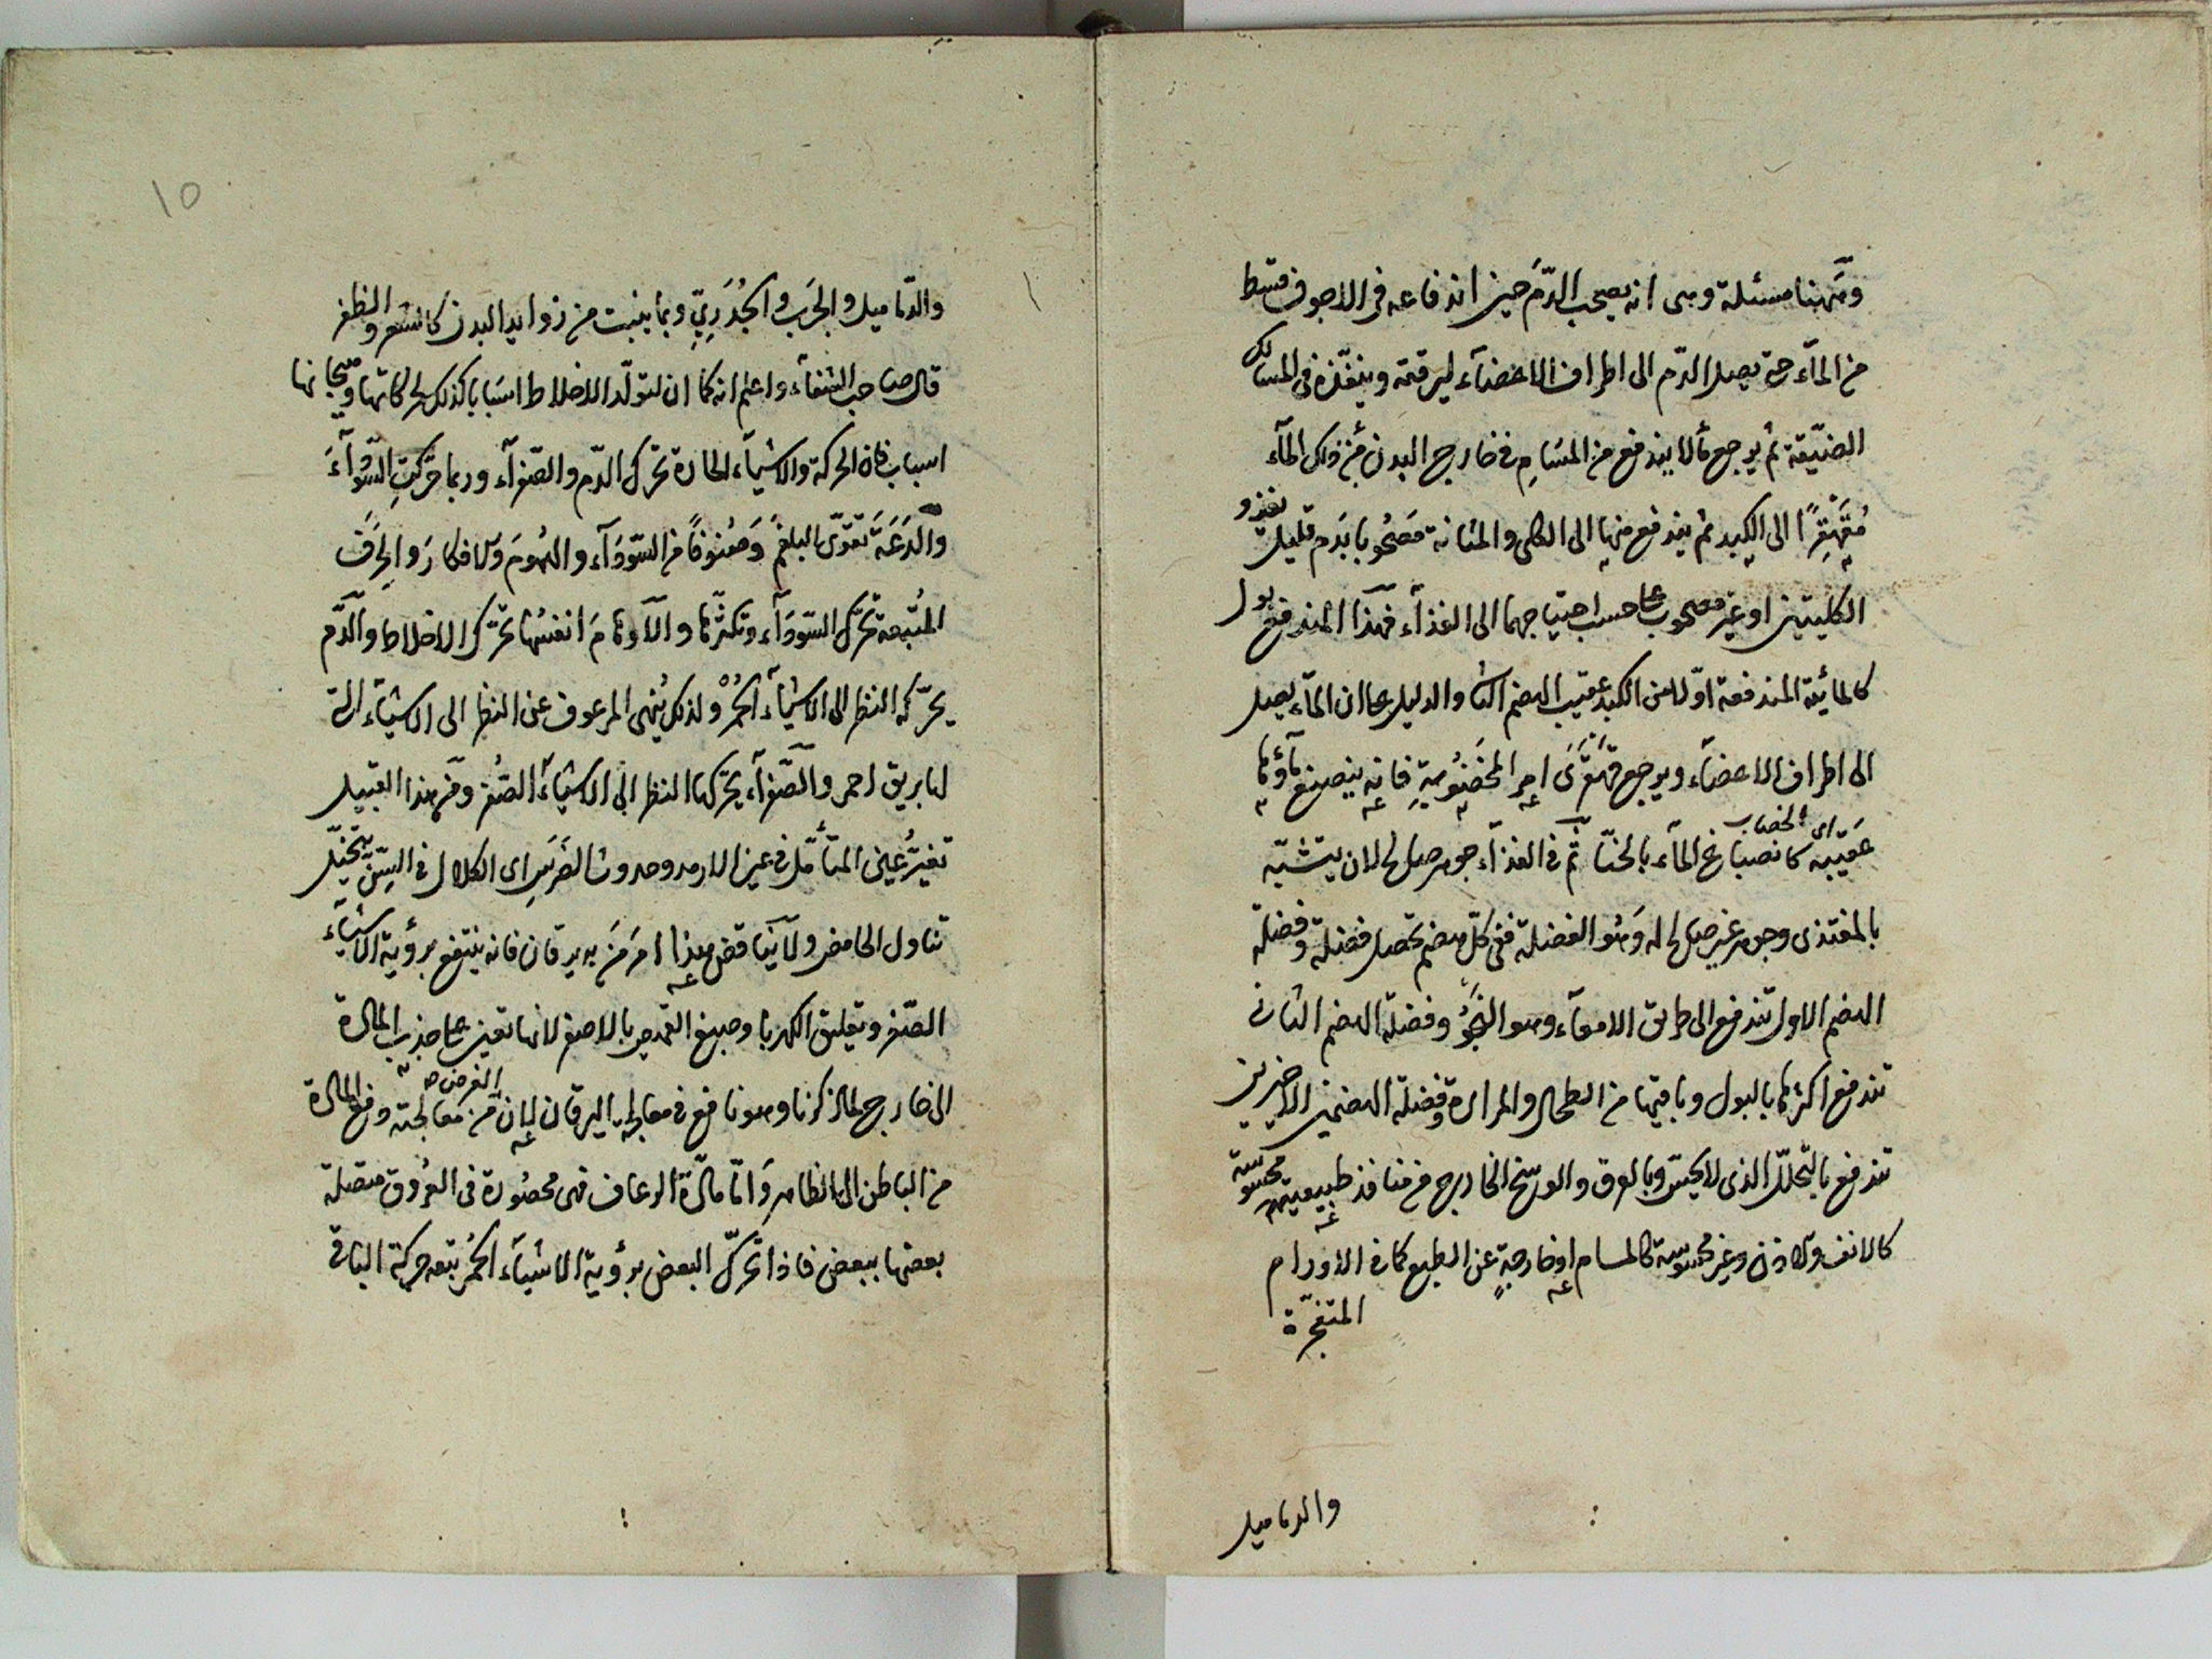 وههنا مسئلة وهى انه يصحب الدّم حين اندفاعه فى الاجوف قسط
من المآء حتى يصل الدّم الى اطراف الاعضآء ليرققه وينفّذه فى المسالك
الضيّقة ثم يرجع مالا يندفع من المسَامِ فى خارج البدن من ذلك المآء
مُتَقَهقِرًا الى الكبد ثم يندفع منها الى الكلى والمثانة مَصحُوبا بدَم قليل يغذو
الكليتين او غير مصحوب على حسب احتياجهما الى الغذآء فهذا المندفع بول
كالمائية المندفعة اوّلا من الكبد عقيب الهضم الثا والدليل على ان المآء يصل
الى اطراف الاعضآء ويرجع قهقرَى امر المخضُوبِة فانه ينصبغ ماؤها
اى الخضاب
عَقيبه كانصباغ المآء بالحنّا ثم فى الغذآء جوهر صالح لان يتشبّه
بالمغتذى وجوهر غير صالح له وَهُو الفضلة ففى كلّ هضم تحصل فضلة وفضلة
الهضم الاول تندفع الى طريق الامعآء وهو النجْوُ وفضلة الهضم الثانى
تندفع اكثرها بالبول وباقيها من الطحال والمرارة وفضلة الهضمين الاخيرين
تندفع بالتحلّل الذى لا يحسّ وبالعرق والوسخ الخارج من منافذ طبيعية محسُوسَة
كالانف والاذن وغير محسُوسَة كالمسام او خارجةٍ عن الطبع كما فى الاورام
المتفجّرة
والدماميل
١٥
والدّماميل والجرَب والجُدَرِيّ وبما ينبت من زوايد البدن كالشعر والظفر
قال صاحب الشفآء واعلم انه كما ان لتولّد الاخلاط اسَبابا كذلك لحركاتها وهيجانها
اسباب فان الحركة والاشيآء الحارة تحرك الدّم والصّفرآء وربما حَرّكتِ السّودآءَ
والدَعَةَ تقوّى البلغمَ وَصُنوفًا من السّودَآء والهُمومَ وَالافكارَ والحِرَفَ
المُتعبة تحرّك السّودَآء وتكثرّها والآوهَامَ انفسُها تحرّك الاخلاط والدّم
يحرّكه النظر الى الاشيآء الحُمْرِ ولذلك يُنهى المرعوف عن النظر الى الاشيآء التى
لها بريق احمر والصّفرآء يحرّكها النظر الى الاشيآء الصُفر ومن هذا القبيل
تغيرُّ عين المتأمّل فى عين الارمد وحدوث الضرَسِ اى الكلال فى السِنّ بتخيّل
تناول الحامض ولا يناقض هذا امرَ مَن به يرقان فانه ينتفع برؤية الاشيآء
الصّفر وتعليق الكهربا وصبغ القميص بالاصفر لانها تعين على جذب المادة
الى خارج لما ذكرنا وهو نافع فى معالجة اليرقان لان الغرض من معالجته دفع المادّة
من الباطن الى الظاهر وَامّا مادّة الرعاف فهى محصُورة فى العُروق متصلة
بعضها ببعض فاذا تحرّك البعض برؤية الاشيآء الحُمُر يتبعه حركة الباقى